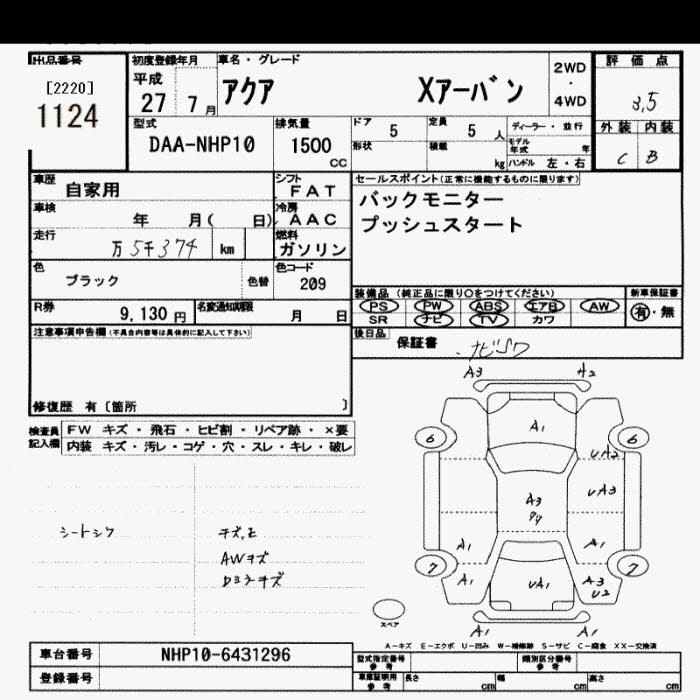 出品番号
[2220]
1124
初度登録年月
平成
27 7月
車名・グレード
アクア Xアーバン
2WD
・
4WD
評価点
3.5
外装 内装
C B
型式
DAA-NHP10
排気量
1500
CC
ドア 5
定員 5 人
形状
積載 kg
ディーラー・並行
モデル年式 年
ハンドル 左・右
車歴 自家用
シフト
FAT
車検 年 月( 日)
冷房
AAC
走行 万5千374 km
燃料
ガソリン
色 ブラック 色替
色コード
209
R券 9,130円
名変通知期限 月 日
セールスポイント(正常に機能するものに限ります)
バックモニター
プッシュスタート
装備品 (純正品に限り○をつけてください)
PS PW ABS エアB AW
SR ナビ TV カワ
新車保証書
有・無
後日品 保証書
注意事項申告欄(不具合内容等は具体的に記入して下さい)
修復歴 有〔箇所 〕
検査員記入欄
FW キズ・飛石・ヒビ割・リペア跡・×要
内装 キズ・汚レ・コゲ・穴・スレ・キレ・破レ
シートシワ
AWキズ
A3 A2
A1
6 6
UA2
A3
UA3
A1 A1
7 7
A1 UA1 A3
U2
A1 A1
スペア
A-キズ E-エクボ U-凹み W-補修跡 S-サビ C-腐食 XX-交換済
車台番号 NHP10-6431296
登録番号
型式指定番号
参考
類別区分番号
参考
車庫証明用
参考
長さ cm
幅 cm
高さ cm